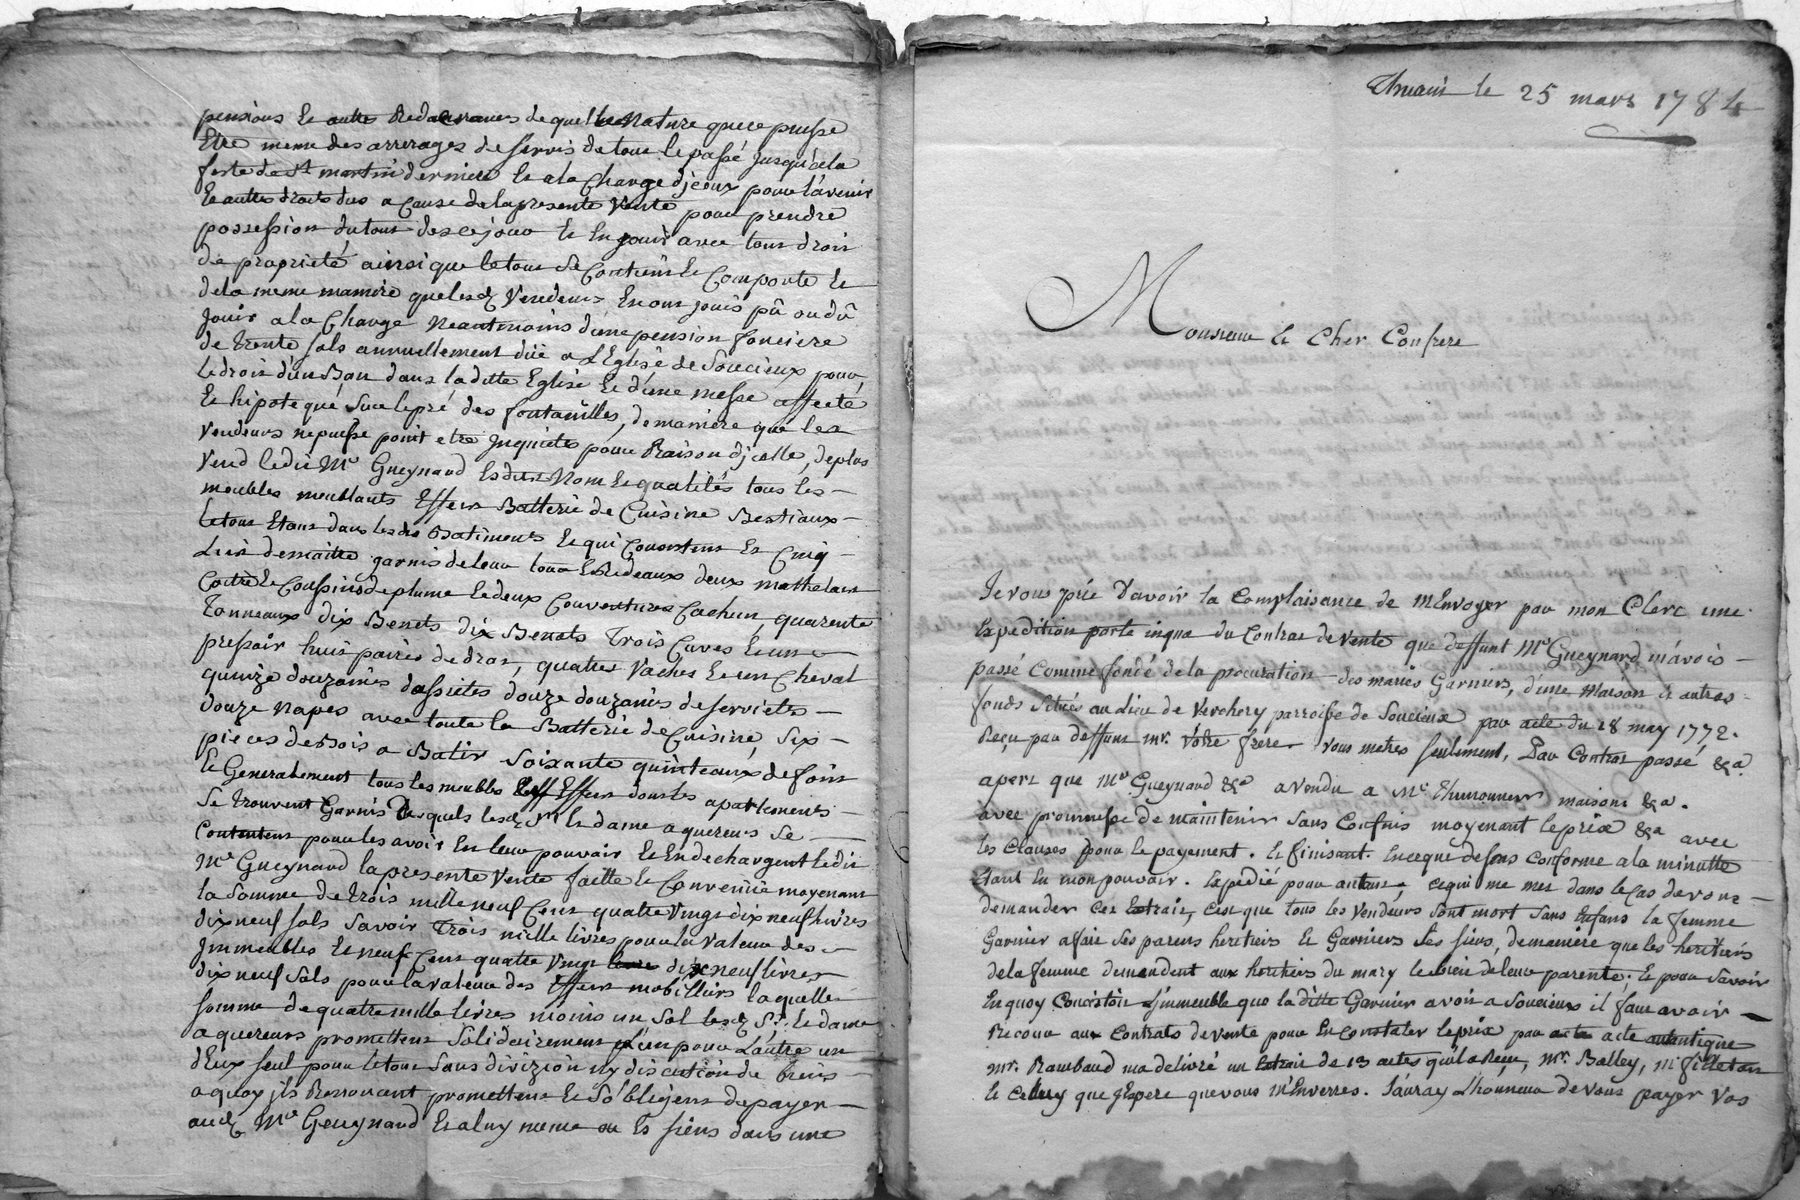 pensions et autre Redevances de quelle Nature que ce puisse
Etre meme des arrerages de servis de tout le passé jusqu'a la
feste de St martin derniere et a la Charge d'jceux pour l'avenir
et autres droits dus a cause de la presente Vente pour prendre
possession du tout des ce jour et En jouir avec tous droit
de proprieté ainsi que le tout se Contient et Comporte et
de la meme maniere que lesd Vendeurs En ont jouis pû ou dû
jouir a la Charge Neantmoins d'une pension fonciere
de trente sols annuellement düe a L'Eglise de Soucieux pour
le droit d'un Ban dans la ditte Eglise et d'une messe affecté
et hipotequé sur le pré des fontanilles, de maniere que les
Vendeurs ne puisse point etre jnquietés pour Raison d'jcelle, de plus
Vend ledit Me Gueynard Esdits Nom et qualités tous les
meubles meublants Effets Batterie de Cuisine Bestiaux
le tout Etant dans lesdits Batiments et qui Consistent En Cinq
Lits de maitre garnis de leur tour et Rideaux deux mathelats
Coitre et Coussins de plume et deux Couvertures Cachun, quarente
Tonneaux dix Benots dix Benats Trois Cuves et un
pressoir huit paires de dras, quatres Vaches et un Cheval
quinze douzaines d'assietes douze douzaines de serviettes
douze Napes avec toute la Batterie de Cuisine, Six
pieces de Bois a Batir Soixante quinteaux de foin
et Generalement tous les meubles Effets dont les apartements
se trouvent Garnis Desquels lesd Sr et dame aquereurs se
Contentent pour les avoir En leur pouvoir et En dechargent ledit
Me Gueynard la presente Vente faitte et Convenüe moyenant
la somme de trois mille neuf Cent quatre Vingt dix neuf livres
dix neuf sols savoir Trois mille livres pour la Valeur des
jmmeubles et neuf Cent quatre Vingt dix neuf livres
dix neuf sols pour la Valeur des Effets mobilliers laquelle
somme de quatre mille livres moins un sol lesd Sr. et dame
aquereurs promettent Solidairement l'un pour L'autre un
d'Eux seul pour le tout Sans divizion ny discution de biens
a quoy jls Renoncent promettent et S'obligent de payer
aud Me Gueynard Et a luy meme ou Es siens dans une
le 25 mars 1784
Monsieur et Cher Confrere
Je vous prie d'avoir la Complaisance de m'Envoyer par mon Clerc une
Expedition porte inqua du Contrat de Vente que deffunt Me Gueynard m'avois
passé Comme fondé de la procuration des mariés Garniers, d'une Maison et autres
fonds Situés au Lieu de Verchery parroisse de Soucieux par acte du 28 may 1772.
Reçu par deffunt mr. Votre frere Vous metres seulement, Par Contrat passé &a.
apert que Me Gueynard &a a vendu a Me Thimonnier maisons &a.
avec promesse de maintenir Sans Confins moyenant le prix &a avec
les Clauses pour le payement. Et finisant. En ce que dessus Conforme a la minutte
Etant En mon pouvoir. Expedié pour autant, ce qui me met dans le Cas de vous
demander Cet Extrait, C'est que tous les Vendeurs Sont mort Sans Enfans la femme
Garnier a fait ses parens heritiers et Garniers les Siens, de maniere que les heritiers
de la femme demandent aux heritiers du mary le bien de leur parente; Et pour Savoir
En quoy Concistoit L'jmmeuble que la ditte Garnier avoit a Soucieux il faut avoir
Recour aux Contrats de Vente pour En Constater le prix par acte autentique
mr. Rambaud ma delivré un Extrait de 13 actes qu'il a Reçu, Mr. Balley, mr filletan
et Celuy que jEspere que vous m'Enverres. J'auray L'honneur de vous payer Vos